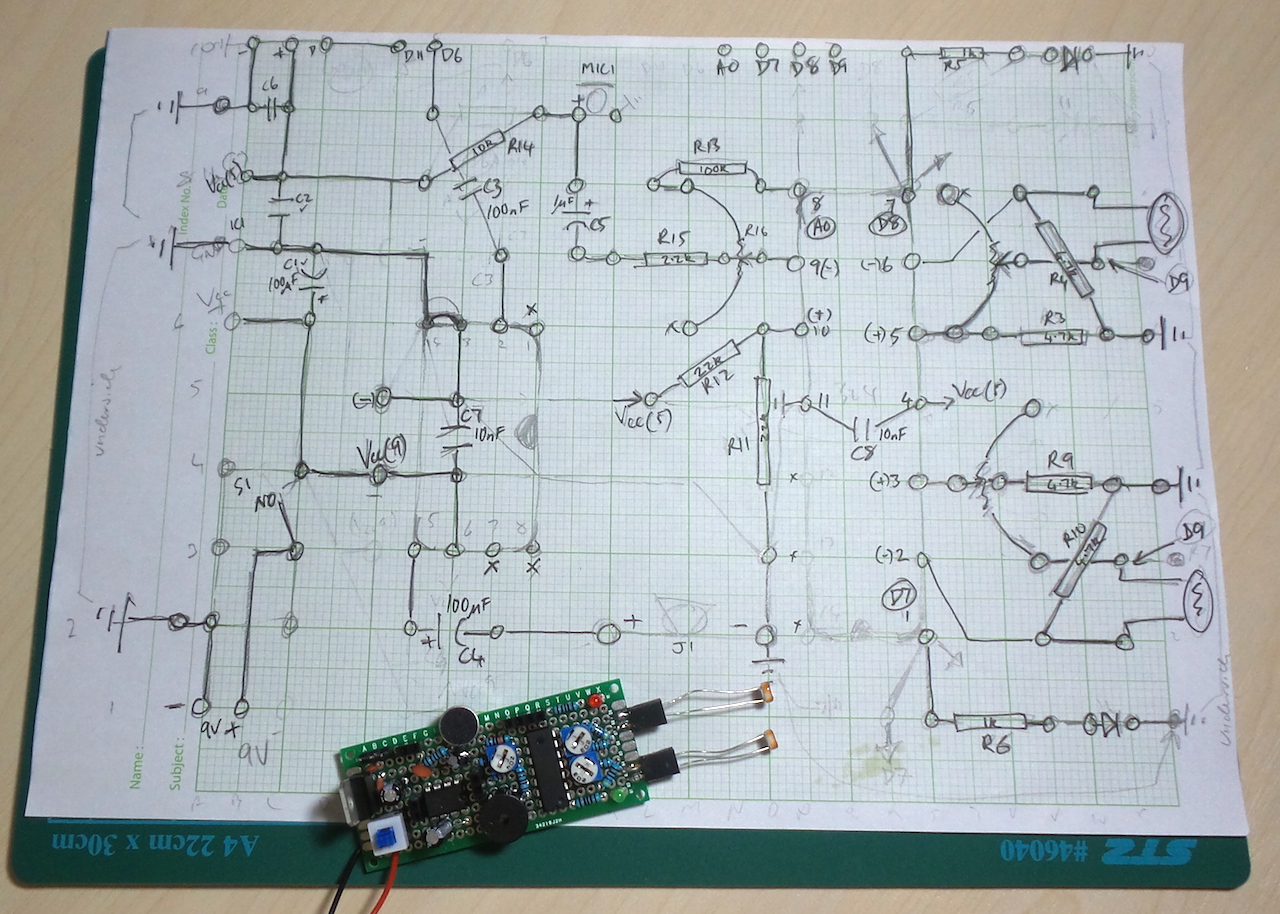 - + D D4 D6
A0 D7 D8 D9
R5
MIC1
+
C6
10K
R14
Vcc(5)
C2
C3
100nF
R13
100K
1µF +
C5
8
A0
7
D8
x
Index No.
IC1
GND
C1
100µF
+
R15
2.2K
R16
9(-)
(-)6
R4
D9
C3
Vcc
+
Class:
x
2
1
x
(+)
10
(+)5
R3
4.7K
22K
R12
Vcc(5)
R11
11
4
Vcc(5)
C8
10nF
5
(-)
C7
10nF
underside
Vcc(9)
4
S1
NO
x
(+)3
R9
4.7K
3
5
6
7
8
x
x
x
(-)2
R10
4.7K
D9
2
100µF
+
C4
+
J1
-
x
D7
1
underside
-
9V +
9V
R6
1K
D7
Name:
Subject:
A B C D E F G
M N O P Q R S T U V W X
A4 22cm x 30cm
#46040
STZ